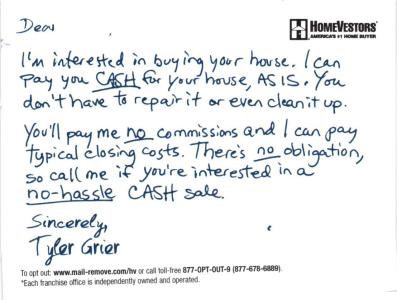 Dear
HomeVestors
AMERICA'S #1 HOME BUYER
I'm interested in buying your house. I can
pay you CASH for your house, AS IS. You
don't have to repair it or even clean it up.
You'll pay me no commissions and I can pay
typical closing costs. There's no obligation,
so call me if you're interested in a
no-hassle CASH sale.
Sincerely,
Tyler Grier
To opt out: www.mail-remove.com/hv or call toll-free 877-OPT-OUT-9 (877-678-6889).
*Each franchise office is independently owned and operated.